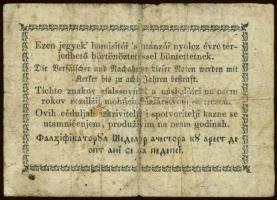 Ezen jegyek' hamisítói 's utánzói nyolcz évre ter-
jedhető börtönöztetéssel büntettetnek.
Die Verfälscher und Nachahmer dieser Noten werden mit
Kerker bis zu acht Jahren bestraft.
Tíchto znakov sfalssovníci a násladníci na osem
rokov
Ovih céduljah izkrivitelji i spotvoritelji kazne se
utamničenjem, produživim na osam godinah.
Фалзіфікаторул Шеделор ачестора кꙋ арест де
опт ані се ва педепсі.